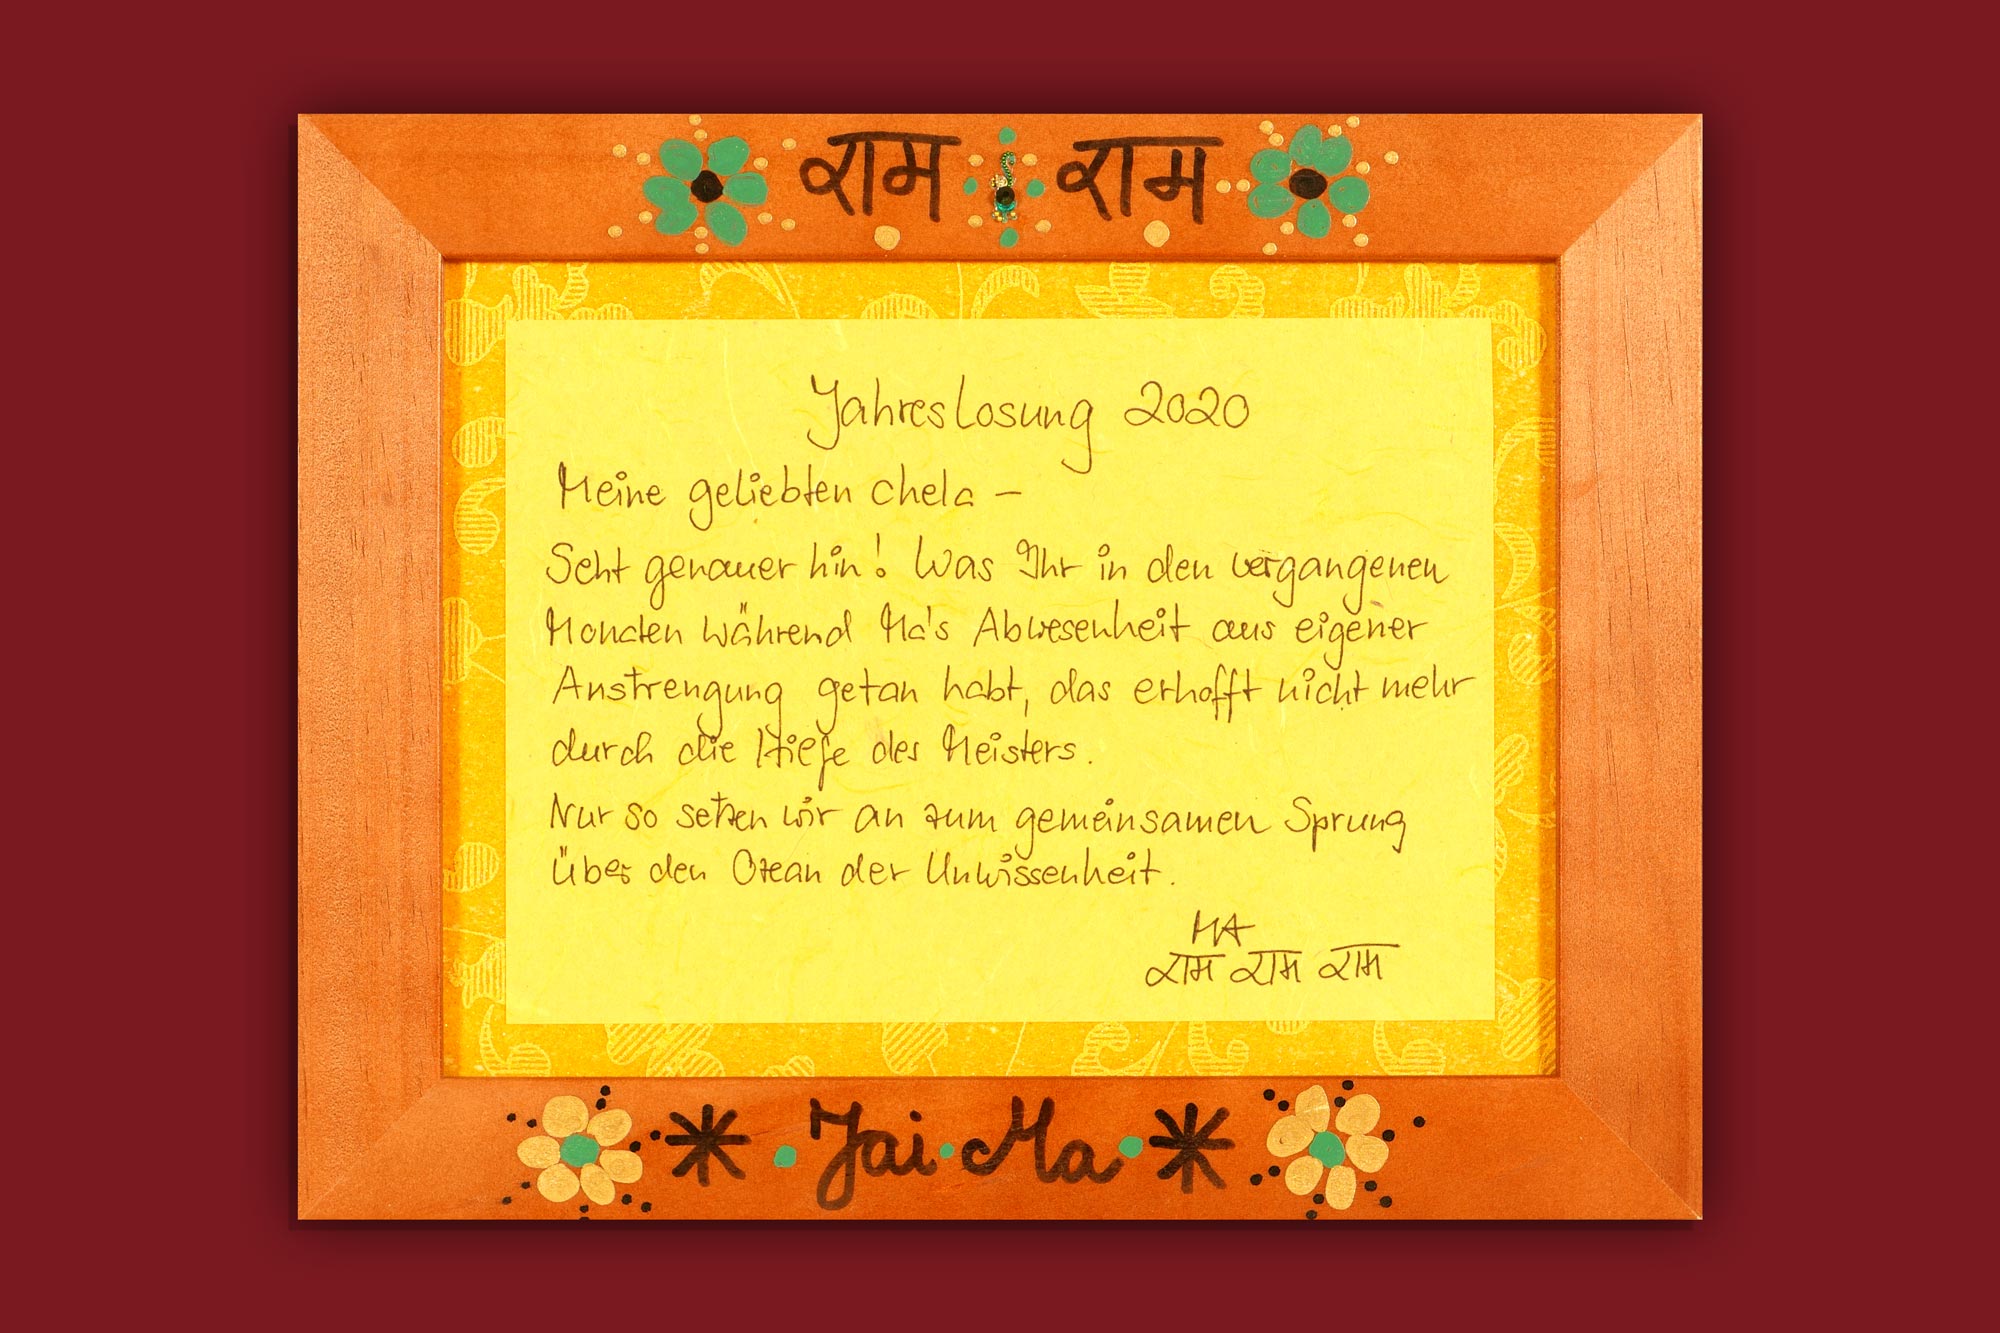 राम राम
Jahreslosung 2020
Meine geliebten chela –
Seht genauer hin! Was Ihr in den vergangenen
Monaten während Ma's Abwesenheit aus eigener
Anstrengung getan habt, das erhofft nicht mehr
durch die Hiefe des Meisters.
Nur so setzen wir an zum gemeinsamen Sprung
über den Ozean der Unwissenheit.
MA
राम राम राम
Jai Ma